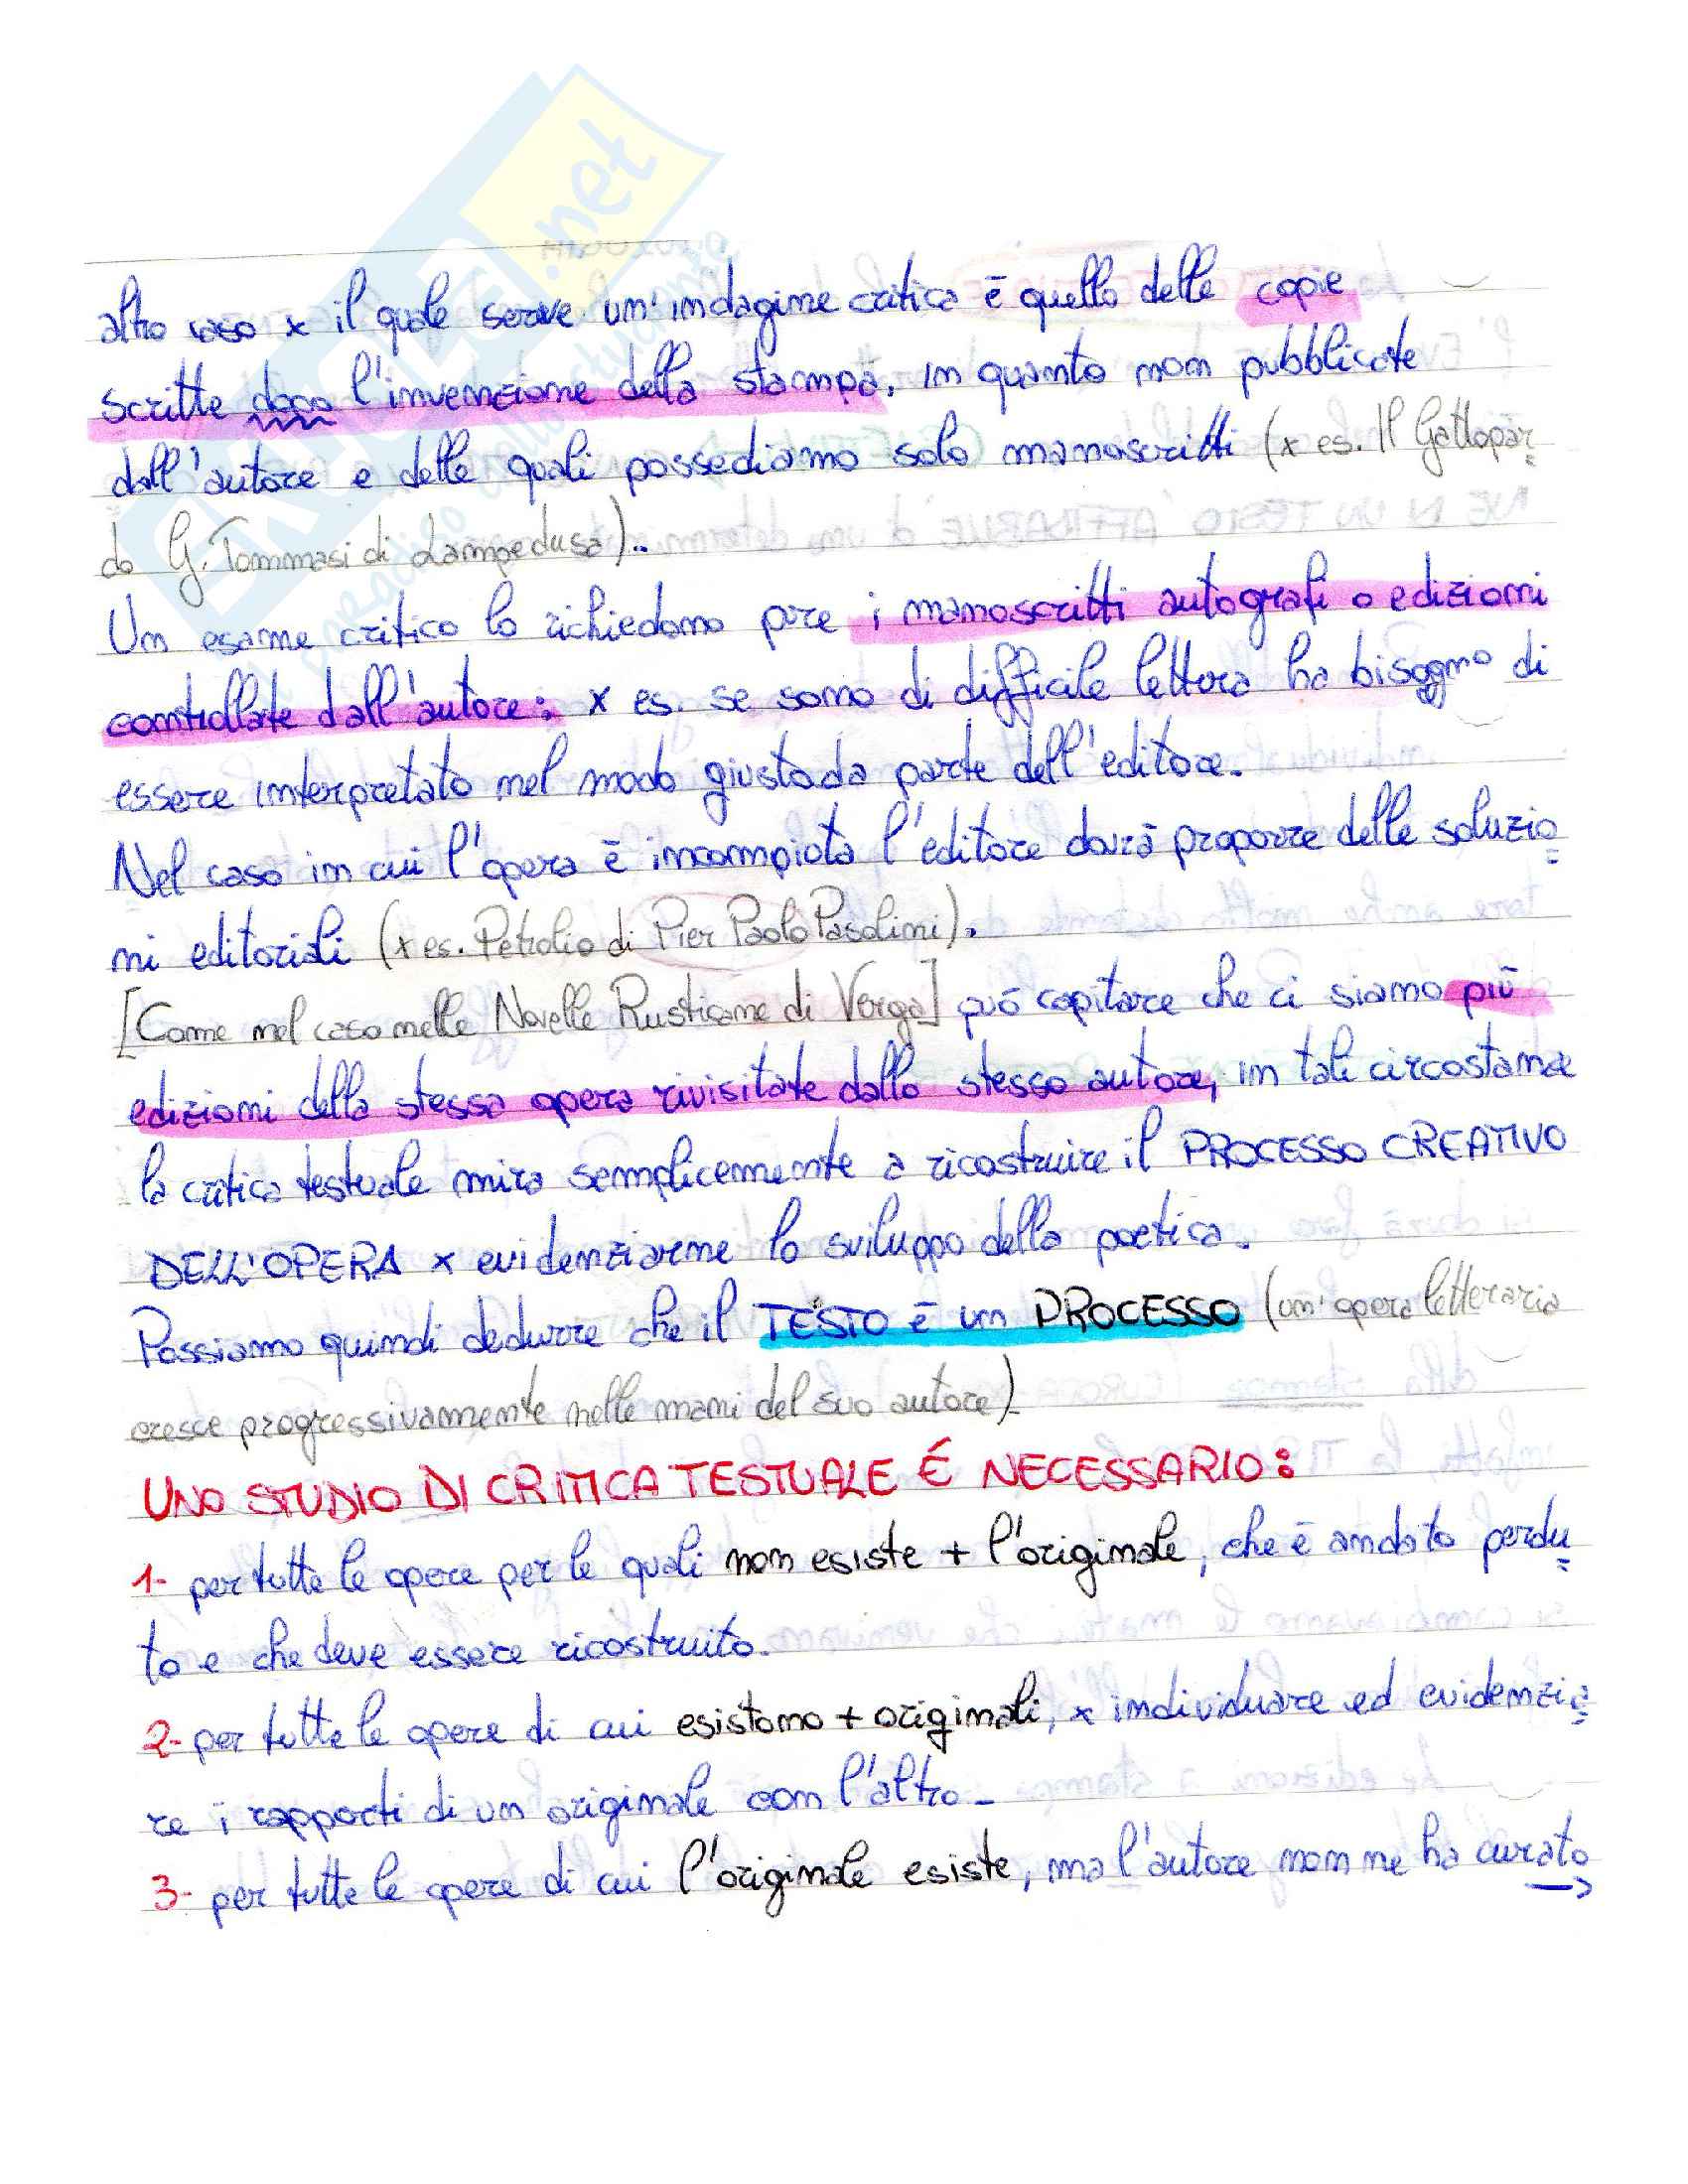 altro caso x il quale serve un'indagine critica è quello delle copie
scritte dopo l'invenzione della stampa, in quanto non pubblicate
dall'autore e delle quali possediamo solo manoscritti (x es. Il Gattopar=
do G. Tommasi di Lampedusa).
Un esame critico lo richiedono pure i manoscritti autografi o edizioni
controllate dall'autore: x es. se sono di difficile lettura ha bisogno di
essere interpretato nel modo giusto da parte dell'editore.
Nel caso in cui l'opera è incompiuta l'editore dovrà proporre delle soluzio=
ni editoriali (x es. Petrolio di Pier Paolo Pasolini).
[Come nel caso nelle Novelle Rusticane di Verga] può capitare che ci siano più
edizioni della stessa opera rivisitate dallo stesso autore, in tale circostanze
la critica testuale mira semplicemente a ricostruire il PROCESSO CREATIVO
DELL'OPERA x evidenziarne lo sviluppo della poetica.
Possiamo quindi dedurre che il TESTO è un PROCESSO (un'opera letteraria
cresce progressivamente nelle mani del suo autore)
UNO STUDIO DI CRITICA TESTUALE É NECESSARIO:
1- per tutte le opere per le quali non esiste + l'originale, che è andato perdu=
to e che deve essere ricostruito.
2- per tutte le opere di cui esistono + originali, x individuare ed evidenzia=
re i rapporti di un originale con l'altro-
3- per tutte le opere di cui l'originale esiste, ma l'autore non ne ha curato
.net